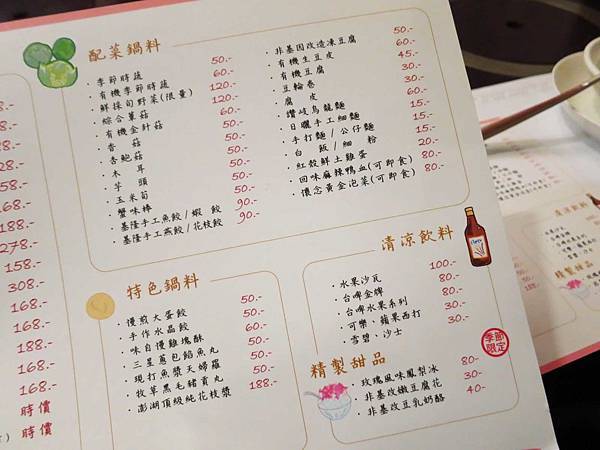 配菜鍋料
・季節時蔬 50.-
・有機季節時蔬 60.-
・鮮採旬野菜(限量) 120.-
・綜合蕈菇 120.-
・有機金針菇 60.-
・香菇 50.-
・杏鮑菇 50.-
・木耳 50.-
・芋頭 50.-
・玉米筍 50.-
・蟹味棒 50.-
・基隆手工魚餃/蝦餃 90.-
・基隆手工燕餃/花枝餃 90.-
・非基因改造凍豆腐 50.-
・有機生豆皮 60.-
・有機豆腐 45.-
・豆輪卷 30.-
・腐皮 60.-
・讚岐烏龍麵 15.-
・日曬手工細麵 15.-
・手打麵/公仔麵 15.-
・白飯/細粉 15.-
・紅殼鮮土雞蛋 20.-
・回味麻辣鴨血(可即食) 80.-
・懷念黃金泡菜(可即食) 80.-
特色鍋料
・慢煎大蛋餃 50.-
・手作水晶餃 50.-
・味自慢雞塊酥 60.-
・三星蔥包餡魚丸 50.-
・現打魚漿天婦羅 50.-
・牧草黑毛豬貢丸 50.-
・澎湖頂級純花枝漿 188.-
清涼飲料
・水果沙瓦 100.-
・台啤金牌 80.-
・台啤水果系列 80.-
・可樂・蘋果西打 30.-
・雪碧・沙士 30.-
季節限定
精製甜品
・玫瑰風味鳳梨冰 80-
・非基改嫩豆腐花 30-
・非基改豆乳奶酪 40-
188.-
278.-
158.-
308.-
168.-
188.-
168.-
168.-
168.-
時價
時價
清涼飲料
精製甜品